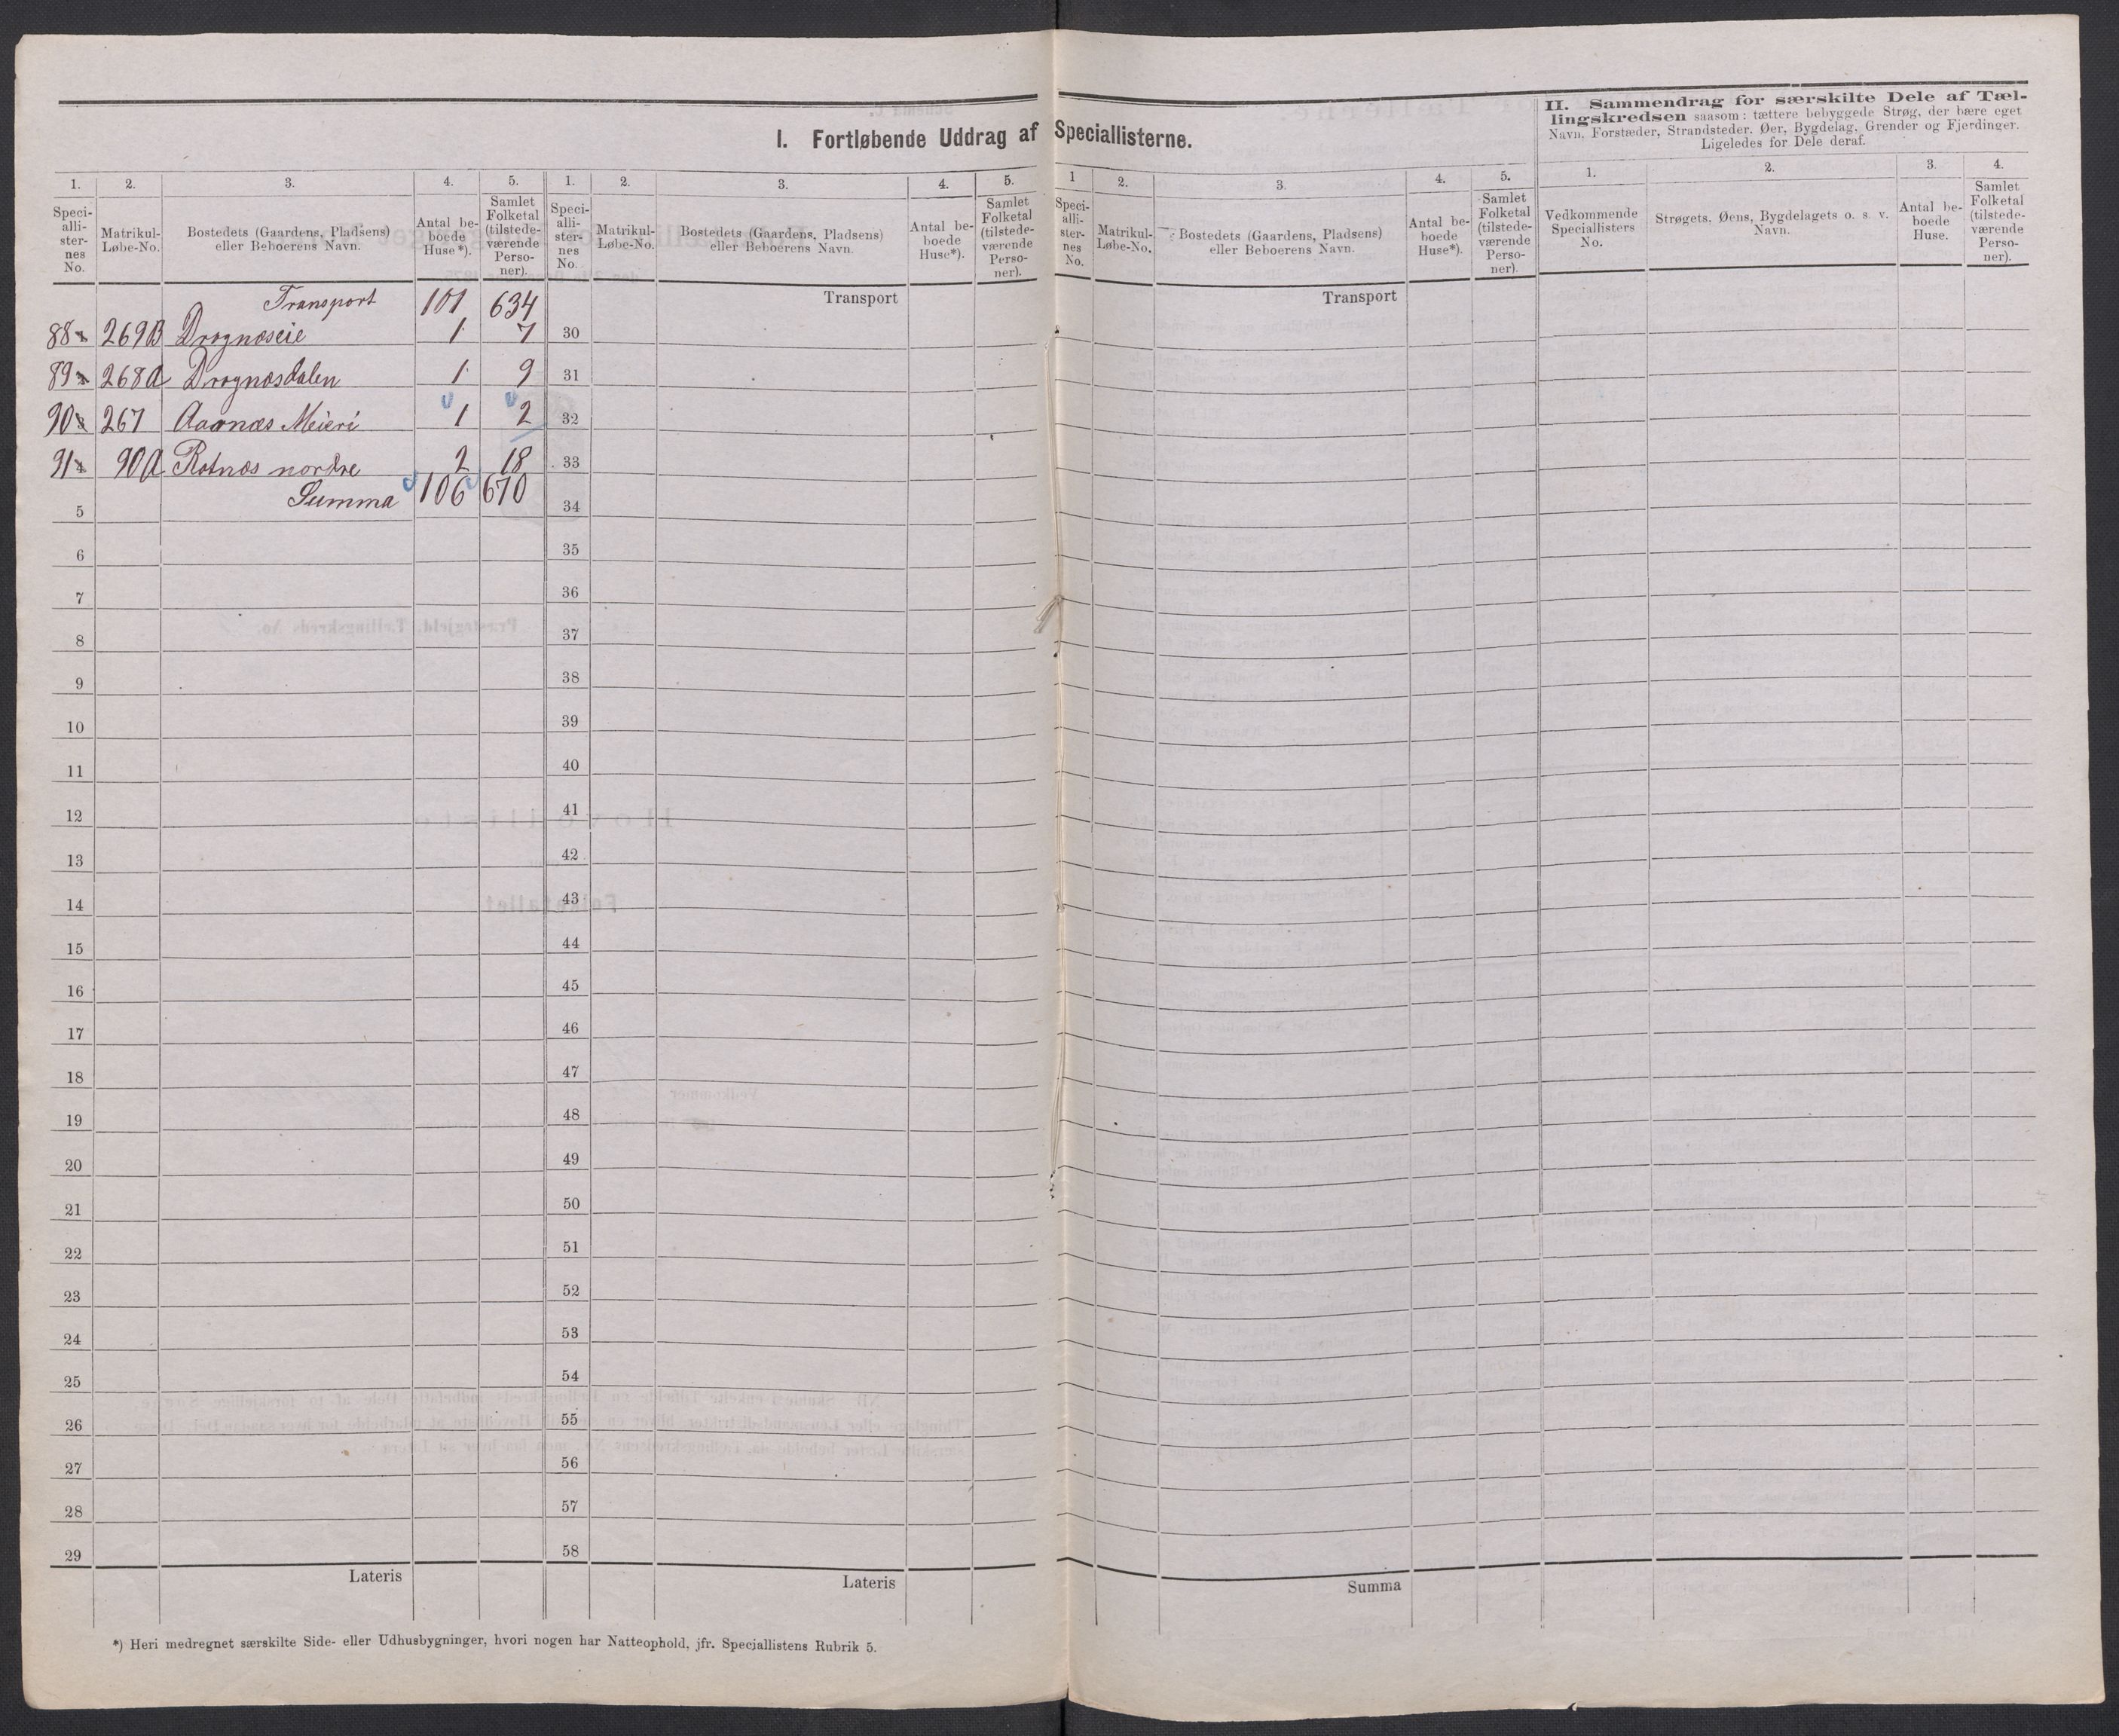 I. Fortløbende Uddrag af Speciallisterne.
II. Sammendrag for særskilte Dele af Tæl-
lingskredsen saasom: tættere bebyggede Strøg, der bære eget
Navn, Forstæder, Strandsteder, Øer, Bygdelag, Grender og Fjerdinger.
Ligeledes for Dele deraf.
1. 2. 3. 4. 5. 1. 2. 3. 4. 5. 1 2. 3. 4. 5. 1. 2. 3. 4.
Speci-
alli-
ster-
nes
No.
Matrikul-
Løbe-No.
Bostedets (Gaardens, Pladsens)
eller Beboerens Navn.
Antal be-
boede
Huse*).
Samlet
Folketal
(tilstede-
værende
Perso-
ner).
Speci-
alli-
ster-
nes
No.
Matrikul-
Løbe-No.
Bostedets (Gaardens, Pladsens)
eller Beboerens Navn.
Antal be-
boede
Huse*).
Samlet
Folketal
(tilstede-
værende
Perso-
ner).
Speci-
alli-
ster-
nes
No.
Matrikul-
Løbe-No.
Bostedets (Gaardens, Pladsens)
eller Beboerens Navn.
Antal be-
boede
Huse*).
Samlet
Folketal
(tilstede-
værende
Perso-
ner).
Vedkommende
Speciallisters
No.
Strøgets, Øens, Bygdelagets o. s. v.
Navn.
Antal be-
boede
Huse.
Samlet
Folketal
(tilstede-
værende
Perso-
ner).
Transport 101 634 Transport Transport
88 269B Drognæseie 1 7 30
89 268A Drognæsdalen 1 9 31
90 267 Aarnæs Meieri 1 2 32
91 90A Rotnæs nordre 2 18 33
Summa 106 670
5 34
6 35
7 36
8 37
9 38
10 39
11 40
12 41
13 42
14 43
15 44
16 45
17 46
18 47
19 48
20 49
21 50
22 51
23 52
24 53
25 54
26 55
27 56
28 57
29 58
Lateris Lateris Summa
*) Heri medregnet særskilte Side- eller Udhusbygninger, hvori nogen har Natteophold, jfr. Speciallistens Rubrik 5.